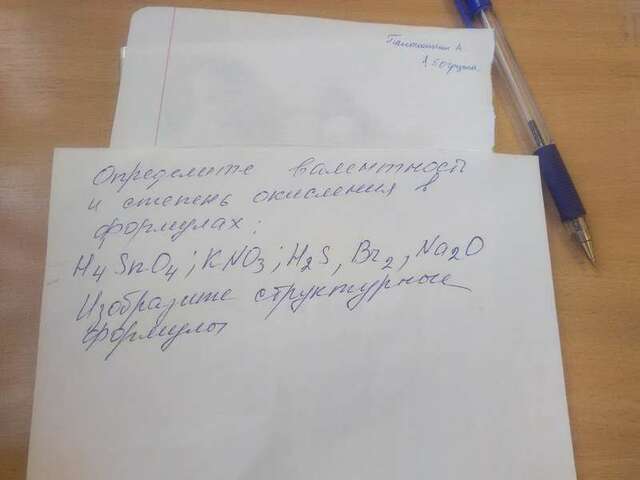 1
Определите валентность
и степень окисления в
формулах:
H4SnO4; KNO3; H2S, Br2, Na2O
Изобразите структурные
формулы